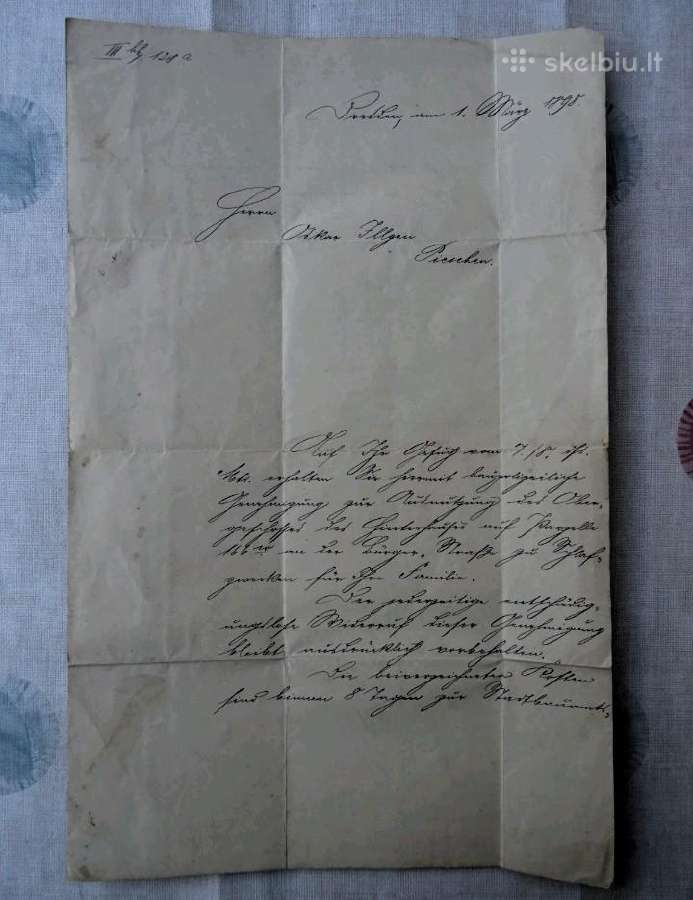 skelbiu.lt
III 121 a
Dresden, am 1. März 1898
Herrn
Oskar Illgen
Pieschen.
Auf Ihr Gesuch vom 7./8.
Mts. erhalten Sie hiermit baupolizeiliche
Genehmigung zur Ausnutzung des Ober-
geschosses des Hinterhauses auf Parzelle
an der Bürger-Straße zu Schlaf-
zwecken für Ihre Familie.
Der jederzeitige entschädig-
ungslose Widerruf dieser Genehmigung
bleibt ausdrücklich vorbehalten.
Die beiverzeichneten Kosten
sind binnen 8 Tagen zur Stadtbauamts-